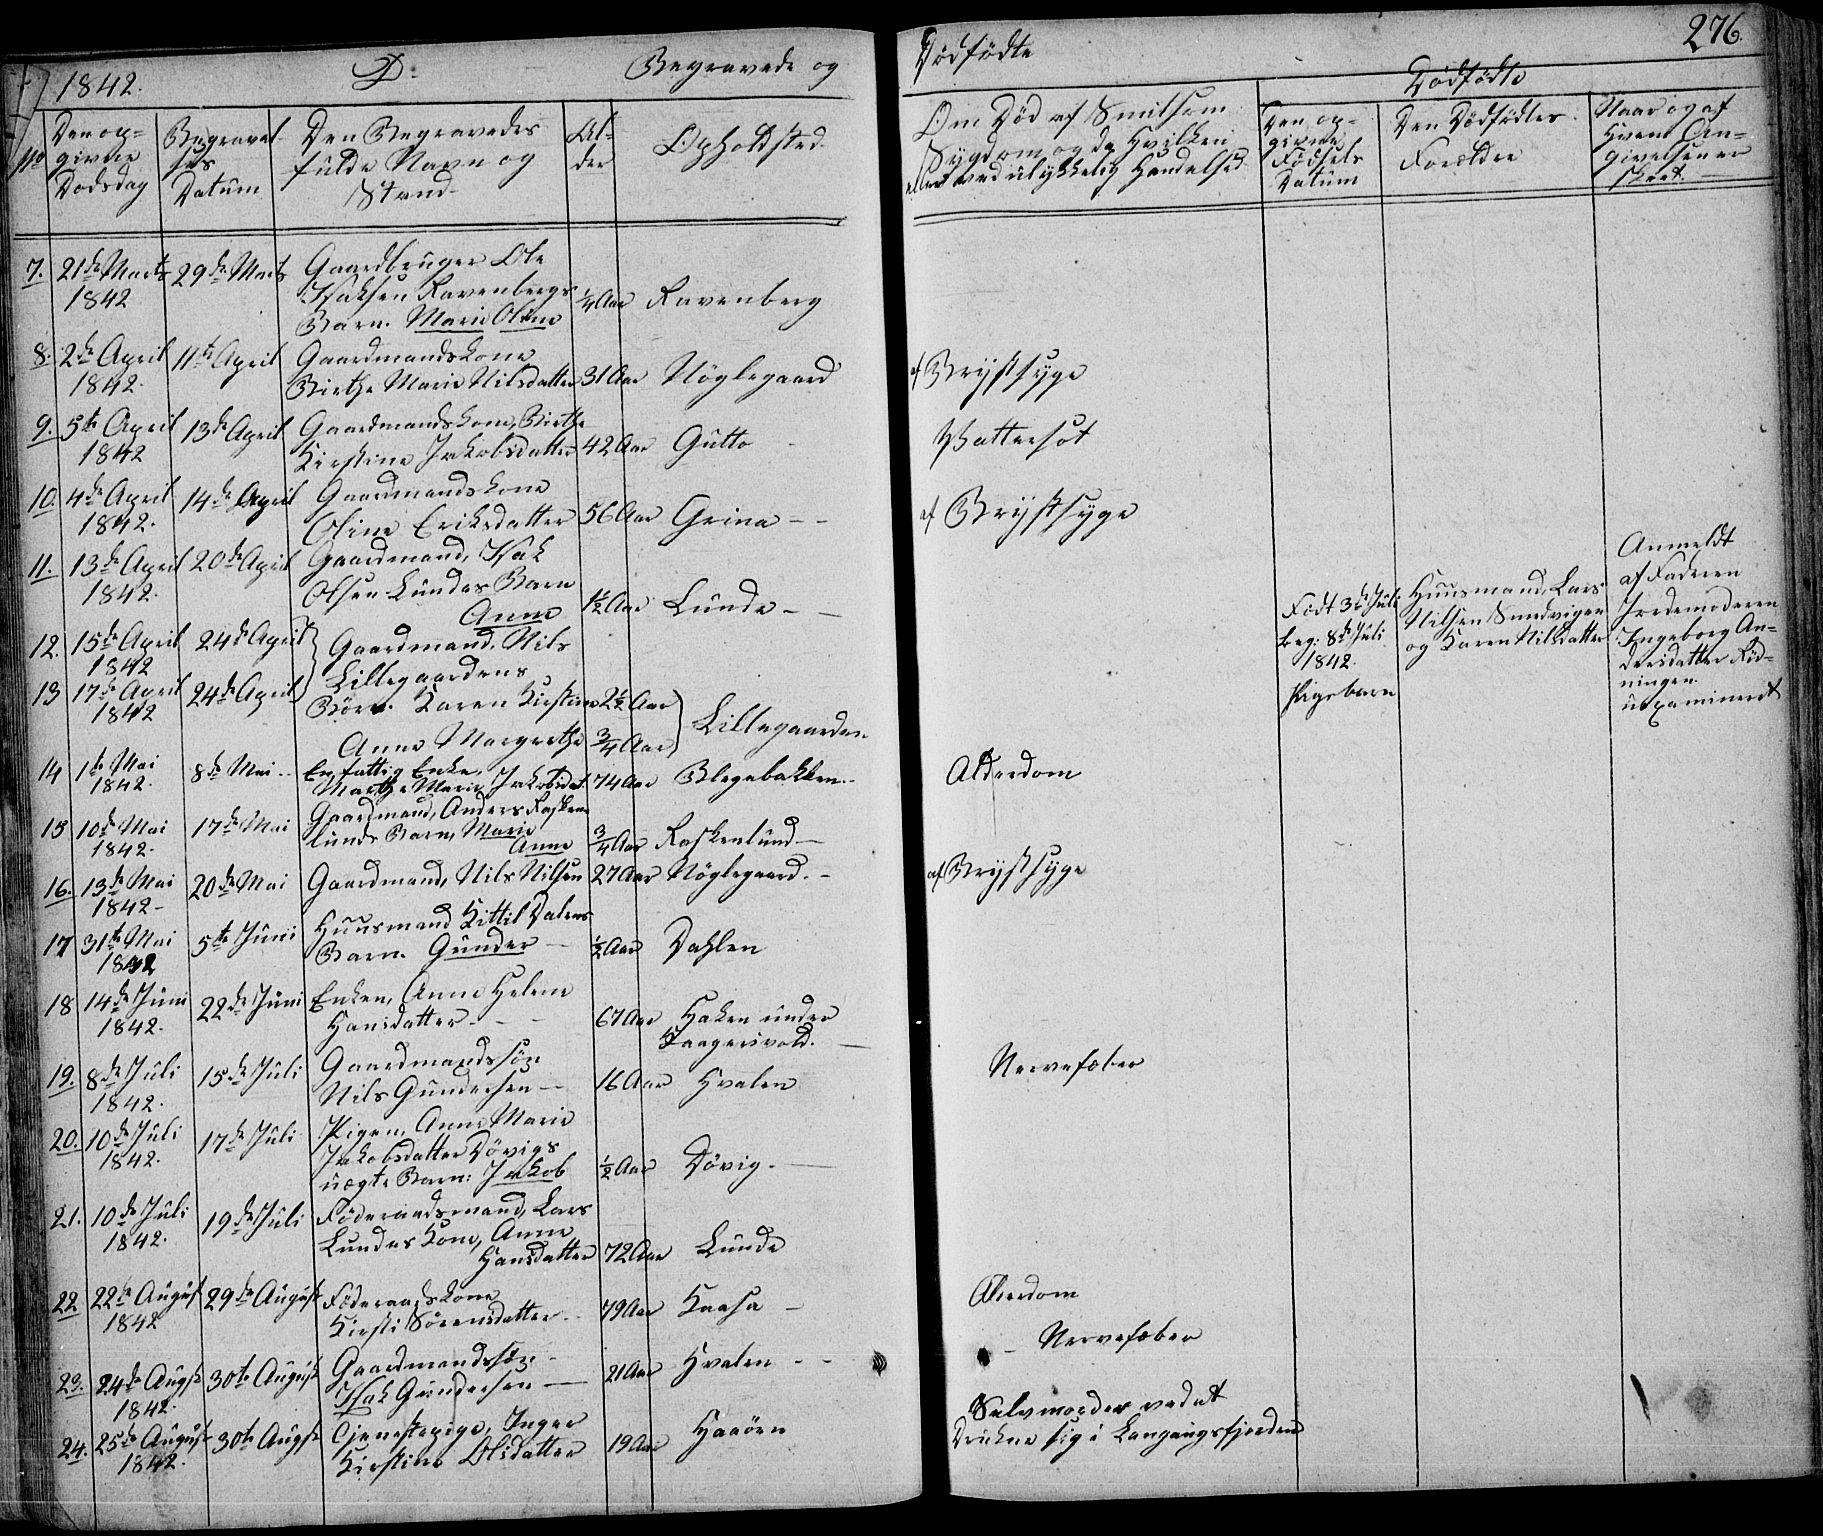 1842.
D.
Begravede og
No
Den op-
givne
Dødsdag
Begravel
ses
Datum
Den Begravedes
fulde Navn og
Stand
Al-
der
Opholdsted.
7. 21de Marts
1842
29de Marts
Gaardbruger Ole
Isaksen Ravenbergs
Barn. Marie Oline
1/4 Aar
Ravenberg
8. 2de April
1842.
11te April
Gaardmandskone
Birthe Marie Nilsdatter
31 Aar
Nøglegaard
9. 5te April
1842
13de April
Gaardmandskone, Birthe
Kirstine Jakobsdatter
42 Aar
Gutto
10. 4de April
1842.
14de April
Gaardmandskone
Oline Eriksdatter
56 Aar
Grina
11. 13de April
1842.
20de April
Gaardmand, Isak
Olsen Lundes Barn
Anne
1½ Aar
Lunde
12. 15de April
1842
24de April
Gaardmand, Nils
Lillegaardens
13 17de April
1842
24de April
Børn. Karen Kirstine
2½ Aar
Anne Margrethe
3/4 Aar
Lillegaarden
14 1te Mai
1842.
8de Mai
En fattig Enke,
Marthe Marie Jakobsdat.
74 Aar
Blegebakken.
15 10de Mai
1842.
17de Mai
Gaardmand, Anders Rosken
lunds Barn, Marie
Anne
3/4 Aar
Roskenlund
16. 13de Mai
1842
20de Mai
Gaardmand, Nils Nilsen
27 Aar
Nøglegaard.
17 31te Mai
1842
5te Juni
Huusmand Kittil Dalens
Barn. Gunder
½ Aar
Dahlen
18 14de Juni
1842.
22de Juni
Enken, Anne Helene
Hansdatter
67 Aar
Haken under
Taagersvold.
19. 8de Juli
1842.
15de Juli
Gaardmandssøn
Nils Gundersen
16 Aar
Hvalen
20. 10de Juli
1842.
17de Juli
Pigen, Anne Marie
Jakobsdatter Døvigs
uægte Barn: Jakob
½ Aar
Døvig.
21. 10de Juli
1842.
19de Juli
Føderaadsmand, Lars
Lundes Kone, Anne
Hansdatter
72 Aar
Lunde
22 22de August
1842
29de August
Føderaadskone
Kirsti Sørensdatter
79 Aar
Kaasa
23. 24de Augst
1842.
30te August
Gaardmandssøn
Isak Gundersen
21 Aar
Hvalen
24. 25de August
1842.
30te Augst
Tjenestepige, Inger
Kirstine Olsdatter
19 Aar
Haaøen
276.
Dødfødte
Om Død af Smitsom
Sygdom og da Hvilken
eller ved ulykkelig Handelse
Dødfødte
Den op-
givne
Fødsels
Datum
Den Dødfødtes
Forældre
Naar og af
Hvem An-
givelsen er
skeet.
af Brystsyge
Vattersot
af Brystsyge
Født 3de Juli
beg: 8de Juli
1842.
Pigebarn
Huusmand, Lars
Nilsen Smedvigen
og Karen Nilsdatter
Anmeldt
af Faderen
Jordemoderen
Ingeborg An-
dersdatter Rød-
ningen.
uexamineret
Alderdom
af Brystsyge
Nervefeber
Alderdom
Nervefeber
Selvmorder ved at
Drukne sig i Langangsfjorden